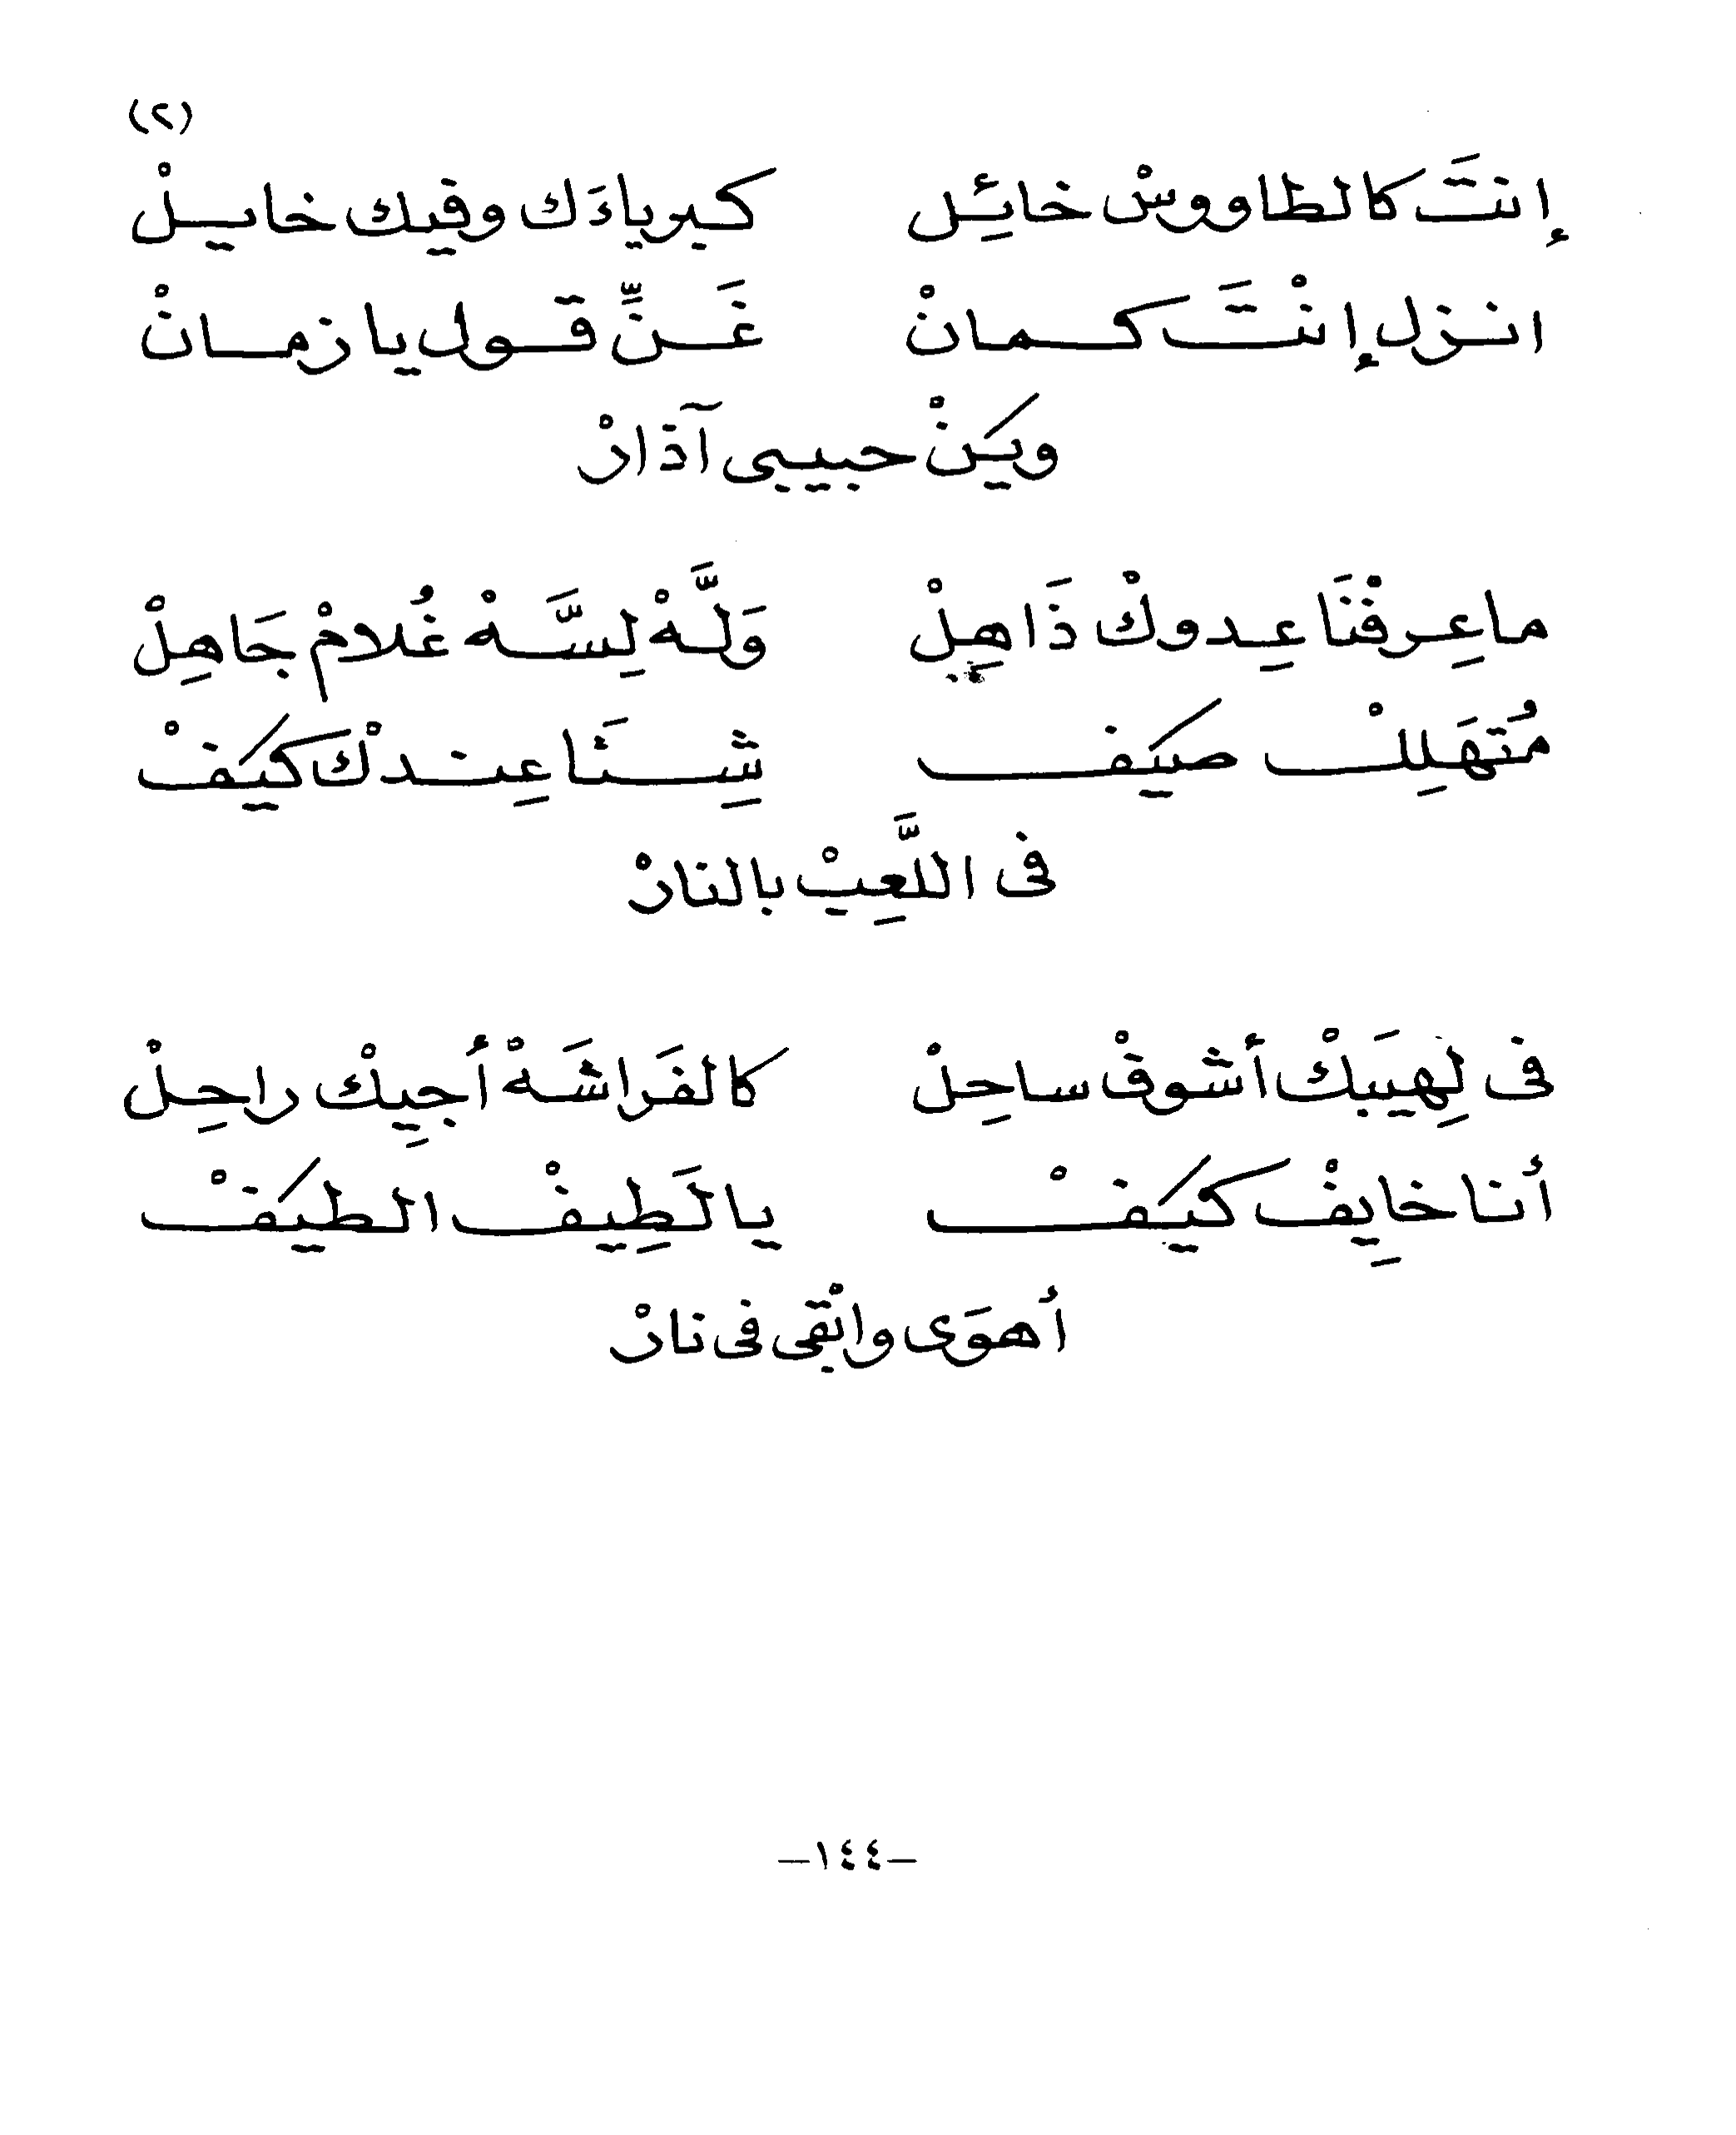 (٢)
إنتَ كالطاووسْ خائِل كبرياءَك وفيك خايلْ
انزل إنْتَ كمانْ غَنِّ قول يا زمانْ
ويَنْ حبيبى آذارْ
ما عِرفْنَا عِدوكْ ذَاهِلْ وَلَّهْ لِسَّهْ غُلامْ جَاهِلْ
مُتهَلِلْ صيَف شِتَا عِندكْ كيَفْ
فى اللَّعِبْ بالنارْ
فى لِهيَبكْ أشوفْ ساحِلْ كالفَراشَهْ أجِيكْ راحِلْ
أنا خايِفْ كيَفْ يا لَطِيفْ الطيَفْ
أهوَى واتْقى فى نارْ
-١٤٤-